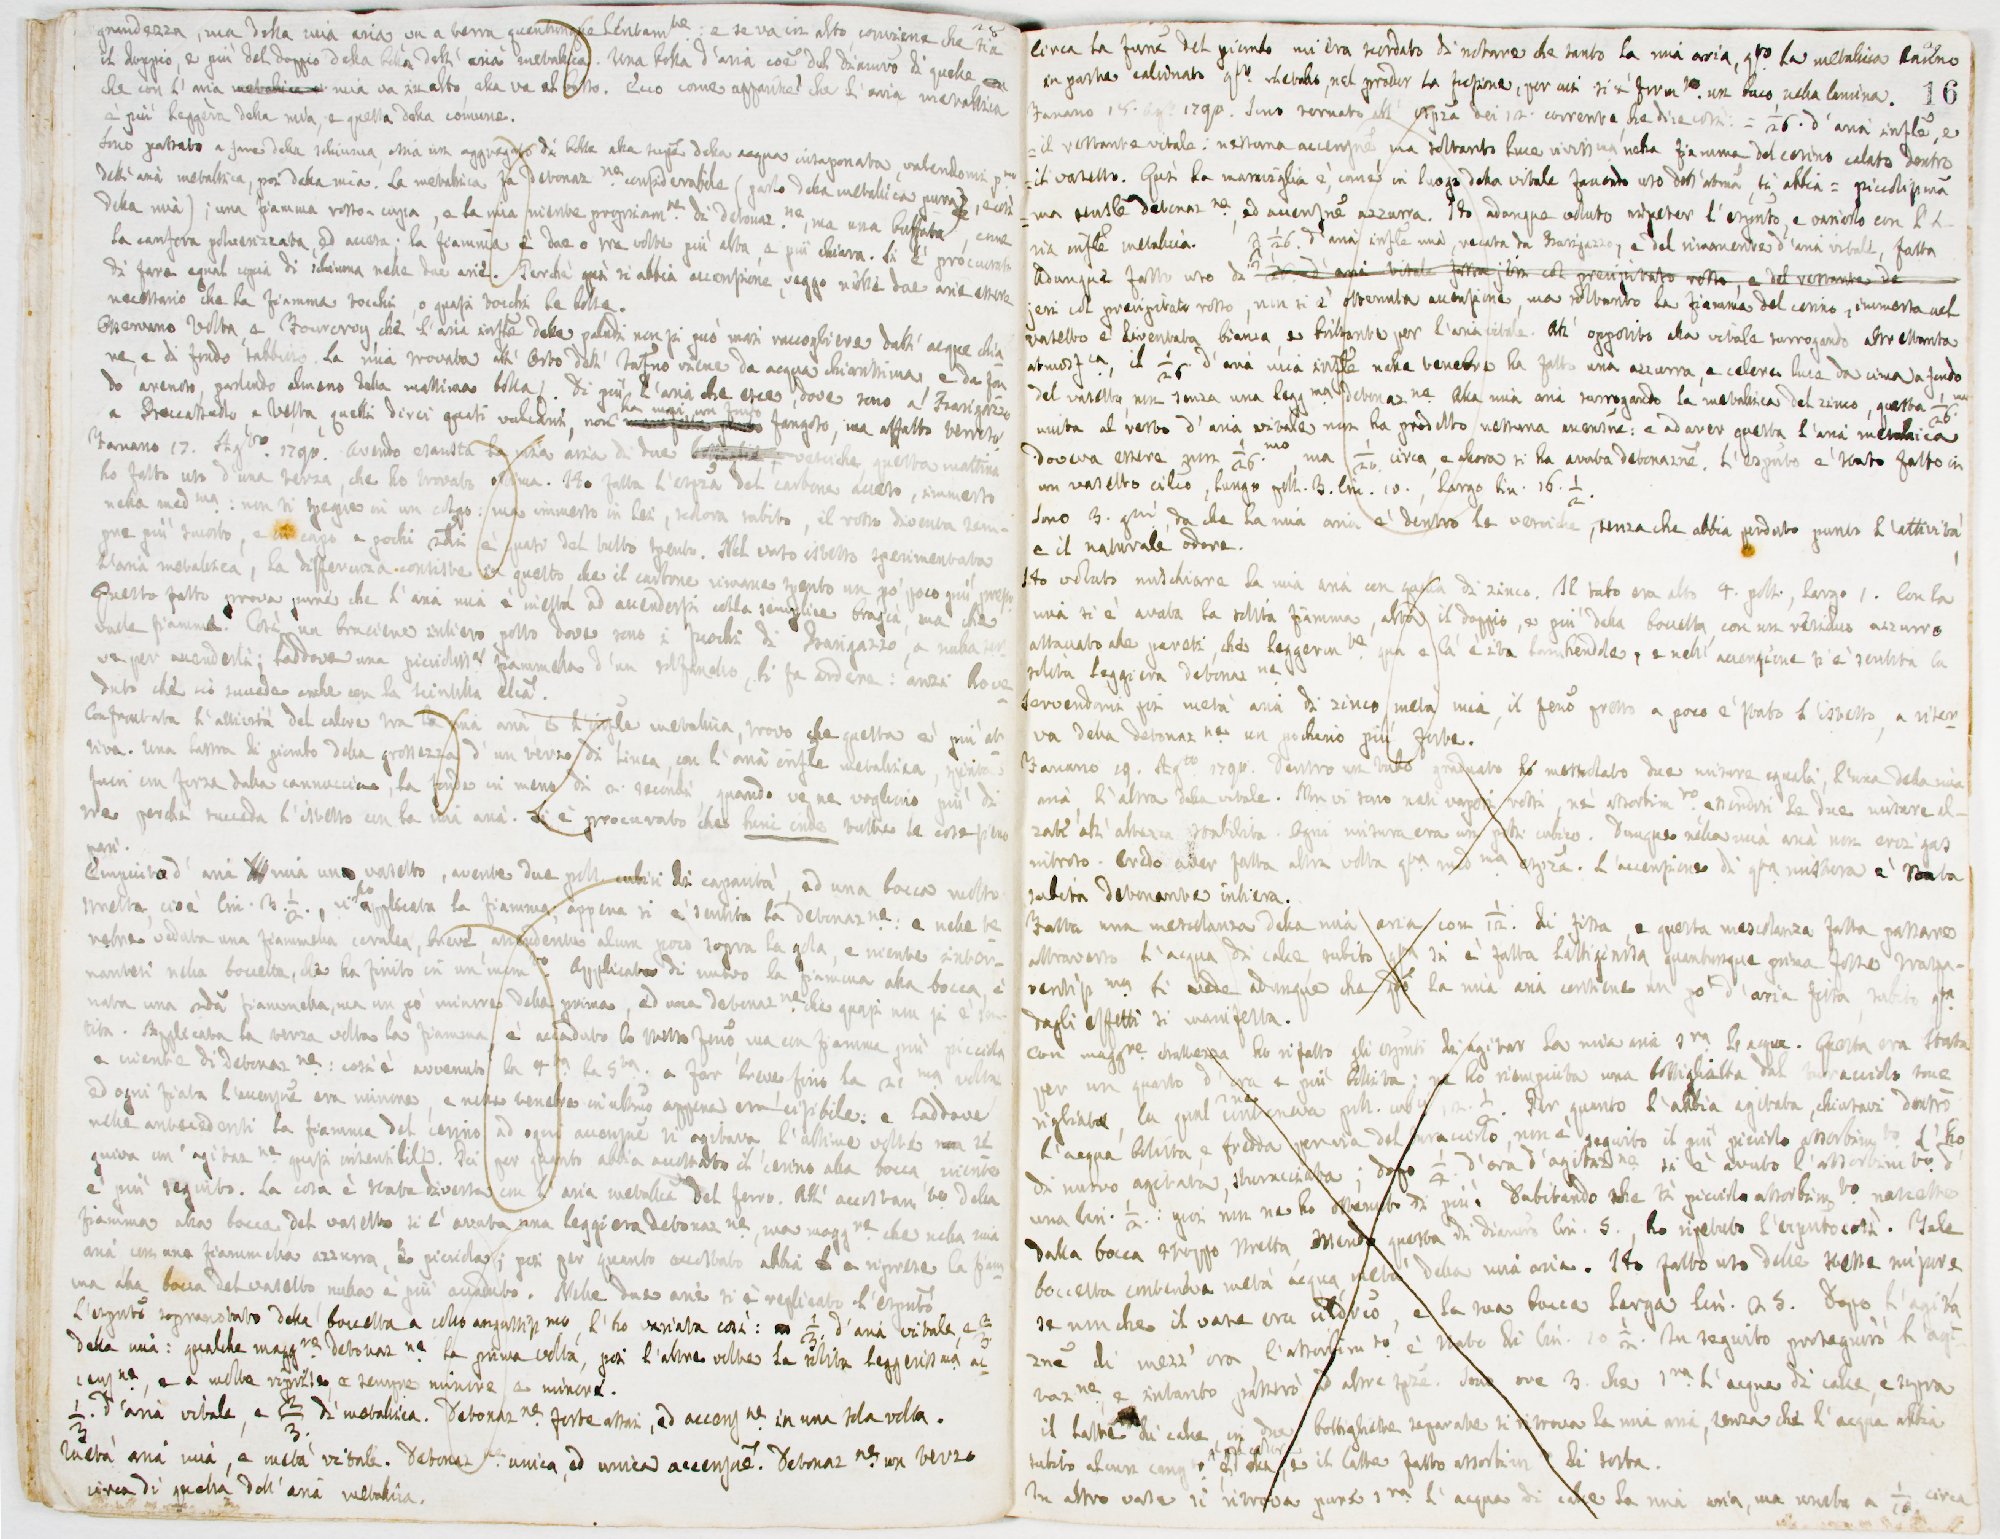 grandezza, ma della mia aria va a terra quantunque lentam.te: e se va in alto, conviene che sia
il doppio, e più del doppio della bolla dell'aria metallica. Una bolla d'aria coe del diametro di quelle
che con l'aria mia va in alto, ella va al basso. Ecco come apparisce che l'aria metallica
è più leggera della mia, e questa della comune.
Sono passato a fare della schiuma, ossia un aggregato di bolle alla superf. della acqua insaponata, valendomi pria
dell'aria metallica, poi della mia. La metallica fa detonaz.ne considerabile (parlo della metallica pura), e così
della mia); una fiamma rosso-cupa, e la mia niente propriam.te di detonaz.ne, ma una buffata, come
la canfora polverizzata, ed accesa: la fiamma è due o tre volte più alta, e più chiara. Si è procurato
di fare egual copia di schiuma nelle due arie. Perchè qui si abbia accensione, veggo nelle due arie essere
necessario che la fiamma tocchi, o quasi tocchi le bolle.
Osservano Volta, e Fourcroy che l'aria infle delle paludi non si può mai raccogliere dall'acque chia
ne, e di fondo sabbioso. La mia trovata all'Orto dell'Inferno viene da acqua chiarissima, e da fon
do arenoso, parlando almeno della mattina bolla. Di più l'aria che esce, dove sono a Barigazzo
a Sassatello a Vetta, quelli direi quasi vulcani, non ha mai un fondo fangoso, ma affatto terroso.
Fanano 17. Ag.to 1790. Avendo esausta la mia aria di due vesciche, questa mattina
ho fatto uso d'una terza, che ho trovata ottima. Ho fatta l'espza del carbone acceso, immerso
nella med.ma: non si spegne in un colpo: ma immerso in lei, scolora subito, il rosso diventa sem-
pre più smorto, e in capo a pochi 2di è quasi del tutto spento. Nel vaso istesso sperimentata
l'aria metallica, la differenza consiste in questo che il carbone rimane spento un pò poco più presto
Questo fatto prova pure che l'aria mia è inetta ad accendersi colla semplice bragia, ma che
vuole fiamma. Così un braciere intiero posto dove sono i fuochi di Barigazzo, a nulla ser
ve per accenderli; laddove una piccoliss.a fiammella d'un solfanello, li fa ardere: anzi ho ve
duto che ciò succede anche con la scintilla elca.
Confrontata l'attività del calore tra la mia aria e l'infle metallica, trovo che questa è più at
tiva. Una lastra di piombo della grossezza d'un terzo di linea, con l'aria infle metallica, spinta
fuori con forza dalla cannuccia, la fonde in meno di 2. secondi, quando ve ne vogliono più di
tre perchè succeda l'istesso con la mia aria. Si è procurato che hinc inde tutte le cose sieno
pari.
Empiuto d'aria mia un vasetto, avente due poll. cubici di capacità, ed una bocca molto
stretta, cioè lin. 3 1/2, vi ho applicata la fiamma, appena si è sentita la detonaz.ne: e nelle te
nebre vedata una fiammella cerulea, breve ascendente alcun poco sopra la gola, e niente inter-
nantesi nella boccetta, che ha finito in un mom.to. Applicata di nuovo la fiamma alla bocca, è
nata una 2da fiammella, ma un pò minore della prima, ed una detonaz.ne che quasi non si è sen
tita. Applicata la terza volta la fiamma è accaduto lo stesso feno ma con fiamma più picciola
e niente di detonaz.ne: così è avvenuto la 4.ta la 5.ta. a far breve fino la 21.ma volta
ed ogni fiata l'accensne era minore, e nelle tenebre in ultimo appena era visibile: e laddove
nelle antecedenti la fiamma del cerino ad ogni accensne si agitava l'ultime volte ne se
guiva un'agitaz.ne quasi insensibile. Poi per quanto abbia accostato il cerino alla bocca niente
è più seguito. La cosa è stata diversa con l'aria metallica del ferro. All'accostam.to della
fiamma alla bocca del vasetto si è avuta una leggiera detonaz.ne, ma magg.re che nella mia
aria con una fiammella azzurra, picciola; poi per quanto accostato abbia a riprese la fiam
ma alla bocca del vasetto nulla è più accaduto. Nelle due arie si è replicato l'esprnto
L'esprnto sopranotato della boccetta a collo angustiss.mo, l'ho variato così: 1/3. d'aria vitale, e 2/3
della mia: qualche magg.re detonaz.ne la prima volta, poi l'altre volte la solita leggeriss.ma ac
cens.ne, e a molte riprese, e sempre minore e minore.
1/3. d'aria vitale, e 2/3. di metallica. Detonaz.ne forte assai, ed accens.ne in una sola volta.
Metà aria mia, e metà vitale. Detonaz.ne unica, ed unica accensne. Detonaz.ne un terzo
circa di quella dell'aria metallica.
16
Circa la fusne del piombo mi era scordato di notare che tanto la mia aria, qto la metallica lasciano
in parte calcinato qto metallo, nel prodor la fusione, per cui si è form.to un buco, nella lamina.
Fanano 18. Ag.to 1790. Sono tornato all'espza dei 12. corrente che dice così: = 1/26. d'aria infle, e
= il restante vitale: nessuna accensne, ma soltanto luce viviss.ma nella fiamma del cerino calato dentro
= il vasetto. Qui la maraviglia è, come in luogo della vitale facendo uso dell'atmca, si abbia = piccolissima
= ma sensle detonaz.ne, ed accensne azzurra. Ho adunque voluto ripeter l'esprnto, e variarlo con l'a
ria infle metallica.
Adunque fatto uso di 1/26. d'aria infle mia, recata da Barigazzo, e del rimanente d'aria vitale, fatta
jeri col precipitato rosso, non si è ottenuta accensione, ma soltanto la fiamma del cerino, immersa nel
vasetto è diventata bianca, e brillante per l'aria vitale. All'opposito alla vitale surrogando altrettanta
atmosf.ca, il 1/26. d'aria mia infle nelle tenebre ha fatto una azzurra, e celere luce da cima a fondo
del vasetto, non senza una legg.ma detonaz.ne. Alla mia aria surrogando la metallica del zinco, questa 1/26.
unita al resto d'aria vitale non ha prodotto nessuna accensne: e ad aver questa l'aria metallica
doveva essere non 1/26.mo, ma 1/20. circa, e allora si ha avuta detonazne. L'esprnto è stato fatto in
un vasetto cilco, lungo poll. 3. lin. 10., largo lin. 16. 1/2.
Sono 3. gni, da che la mia aria è dentro le vesciche, senza che abbia perduto punto l'attività,
e il naturale odore.
Ho voluto mischiare la mia aria con quella di zinco. Il tubo era alto 4. poll., largo 1. Con la
mia si è avuta la solita fiamma, alta il doppio, e più della boccetta, con un residuo azzurro
attaccato alle pareti, che leggerm.te qua e là è ita lambendole, e nell'accensione si è sentita la
solita leggiera detonaz.ne
Servendomi poi metà aria di zinco, metà mia, il feno presso a poco è stato l'istesso, a riser
va della detonaz.ne un pocherio più forte.
Fanano 19. Ag.to 1790. Dentro un tubo graduato ho mescolato due misure eguali, l'una della mia
aria, l'altra della vitale. Non vi sono nati vapori rossi, nè assorbim.to essendosi le due misure al-
zate all'altezza stabilita. Ogni misura era un poll. cubico. Dunque nella mia aria non evvi gas
nitroso. Credo aver fatta altra volta qta med.ma espza. L'accensione di qta mistura è stata
subita detonante intiera.
Fatta una mescolanza della mia aria con 1/12. di fissa, e questa mescolanza fatta passare
attraverso l'acqua di calce subito qta si è fatta lattiginosa, quantunque prima fosse traspa-
rentiss.ma. Si vede adunque che se la mia aria contiene un pò d'aria fissa, subito qta
dagli effetti si manifesta.
Con magg.re esattezza ho rifatto gli esprnti di agitar la mia aria s.ra le acque. Questa era stata
per un quarto d'ora e più bollita: ne ho riempiuta una bottiglietta dal turacciolo sme
rigliato, la qual conteneva poll. cubici 12. 1/2. Per quanto l'abbia agitata, chiusavi dentro
l'acqua bollita, e fredda per via del turacciolo, non è seguito il più picciolo assorbim.to. L'ho
di nuovo agitata, sturacciata; dopo 1/4. d'ora d'agitaz.ne si è avuto l'assorbim.to d'
una lin. 1/2.: poi non ne ho ottenuto di più. Dubitando che sì picciolo assorbim.to nascesse
dalla bocca troppo stretta, essendo questa di diametro lin. 5., ho ripetuto l'esprnto così. Tale
boccetta conteneva metà acqua metà della mia aria. Ho fatto uso delle stesse misure
se non che il vaso era cilco, e la sua bocca larga lin. 25. Dopo l'agita
zne di mezz'ora, l'assorbim.to è stato di lin. 10 1/2. In seguito proseguirò l'agi-
taz.ne, e intanto passerò ad altre spze. Sono ore 3. che s.ra l'acqua di calce, e sopra
il latte di calce, in due bottigliette separate si ritrova la mia aria, senza che l'acqua abbia
subito alcun cang.to, e il latte fatto assorbim.to di sorta.
In altro vase si ritrova pure s.ra l'acqua di calce la mia aria, ma unita a 1/12. circa